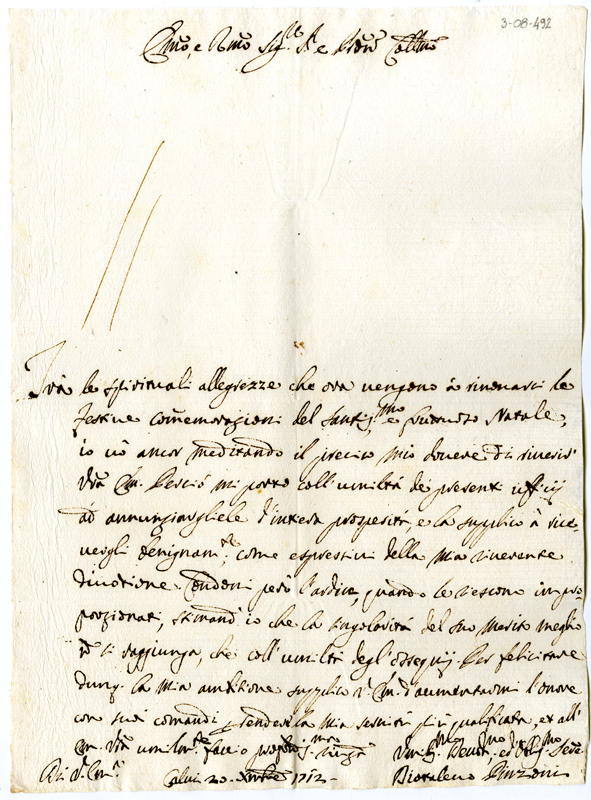 3-08-492
Em̃o, e Rm̃o Sig.re Sr e Pron̄ Coll.mo
Trà le spirituali allegrezze che ora vengono à rinovarci le
festive com̃emorazioni del Santiss.mo e Natale,
io vò ancor meditando il preciso mio dovere di riverir
V̄r̄a Em. Perciò mi porto coll'umiltà de presenti ufficij
ad annunziargliele d'intera prosperità, e la supplico à rice-
vergli benignam.te, come espressivi della mia riverente
divotione. Condoni però l'ardire, quando le riescono impro
porzionati, stimand'io che la singolarità del suo merito meglio
si raggiunga, che coll'umiltà degl'ossequij. Per felicitare
dunq. la mia ambitione supplico V. Em. d'aumentarmi l'onore
con suoi comandi, rendere la mia servitù più qualificata, et all'
Em. V̄r̄a umilm.te faccio profondiss.ma
Di V. Em.a Calvi 20. Xmbre 1712. Um.o Devot.mo ed Obl.mo Serv.